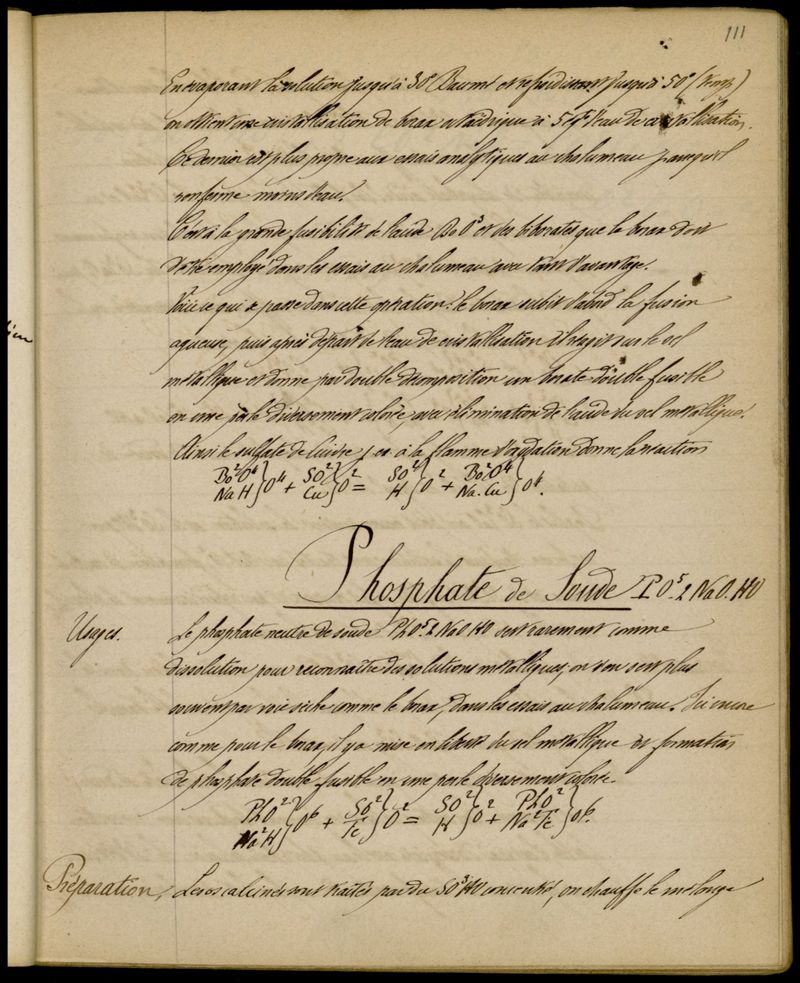 111
En évaporant la solution jusqu'à 30° Baumé et refroidissant jusqu'à 50° (temp)
on obtient une cristallisation de borax octaédrique à 5 éq^ts d'eau de cristallisation.
Ce dernier est plus propre aux essais analytiques au chalumeau parcequ'il
renferme moins d'eau.
C'est à la grande fusibilité de l'acide Bo O³ et des biborates que le borax doit
d'être employé dans les essais au chalumeau avec tant d'avantage.
Voici ce qui se passe dans cette opération: le borax subit d'abord la fusion
aqueuse, puis après départ de l'eau de cristallisation il réagit sur le sel
métallique et donne par double décomposition un borate double fusible
en une perle diversement colorée, avec élimination de l'acide du sel métallique.
Ainsi le sulfate de Cuivre à la flamme d'oxydation donne la réaction
Bo²O⁴ / Na H } O⁴ + SO² / Cu } O² = SO² / H } O² + Bo²O⁴ / Na.Cu } O⁴.
Phosphate de Soude PO⁵ 2 NaO.HO
Usages.
Le phosphate neutre de soude PhO⁵ 2 NaO HO sert rarement comme
dissolution pour reconnaître des solutions métalliques, on s'en sert plus
souvent par voie sèche comme le borax, dans les essais au chalumeau. Ici encore
comme pour le borax, il y a mise en liberté du sel métallique et formation
de phosphate double fusible en une perle diversement colorée.
PhO² / Na²H } O⁶ + SO² / Fe } O² = SO² / H } O² + PhO² / Na²Fe } O⁶.
Préparation.
Les os calcinés sont traités par du SO³HO concentré, on chauffe le mélange